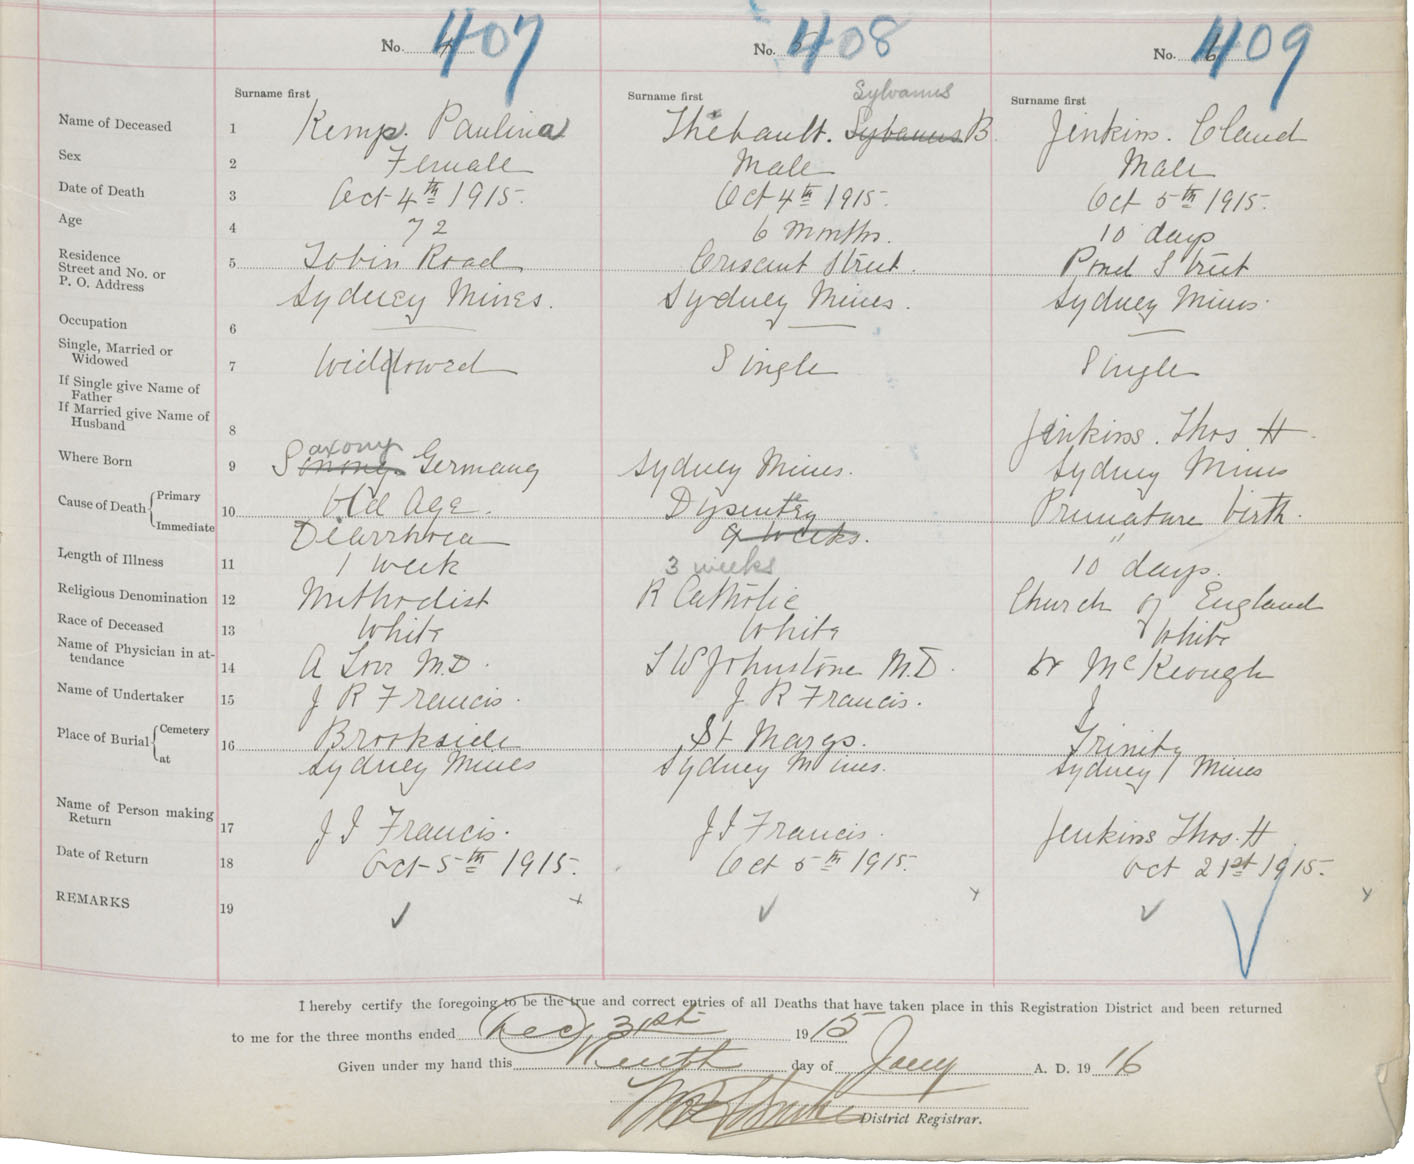 No. 4 407 No. 5 408 No. 6 409
Surname first Surname first Sylvanus Surname first
Name of Deceased 1 Kemp. Paulina Thibault. Sybanus B. Jenkins. Claud
Sex 2 Female Male Male
Date of Death 3 Oct 4th 1915. Oct 4th 1915. Oct 5th 1915.
Age 4 72 6 months. 10 days
Residence
Street and No. or
P. O. Address 5 Tobin Road Crescent Street. Pond Street
Sydney Mines. Sydney Mines. Sydney Mines.
Occupation 6
Single, Married or
Widowed 7 Widdowed Single Single
If Single give Name of
Father
If Married give Name of
Husband 8 Jenkins. Thos H
axony
Where Born 9 S Germany Sydney Mines. Sydney Mines
Cause of Death Primary 10 Old Age. Dysentry Premature birth.
Immediate Diarrhoea 9 Weeks. "
Length of Illness 11 1 Week 3 weeks 10 days.
Religious Denomination 12 Methodist R Catholic Church of England
Race of Deceased 13 White White White
Name of Physician in at-
tendance 14 A M.D. L W Johnstone M.D. Dr McKeough
Name of Undertaker 15 J R Francis. J R Francis. J
Place of Burial Cemetery 16 Brookside St Marys. Trinity
at Sydney Mines Sydney Mines. Sydney Mines
Name of Person making
Return 17 J I Francis. J I Francis. Jenkins Thos. H
Date of Return 18 Oct 5th 1915. Oct 5th 1915. Oct 21st 1915.
REMARKS 19 ✓ x ✓ x ✓ ✓ x
I hereby certify the foregoing to be the true and correct entries of all Deaths that have taken place in this Registration District and been returned
to me for the three months ended Dec 31st 1915
Given under my hand this Tenth day of Jany A. D. 1916
District Registrar.